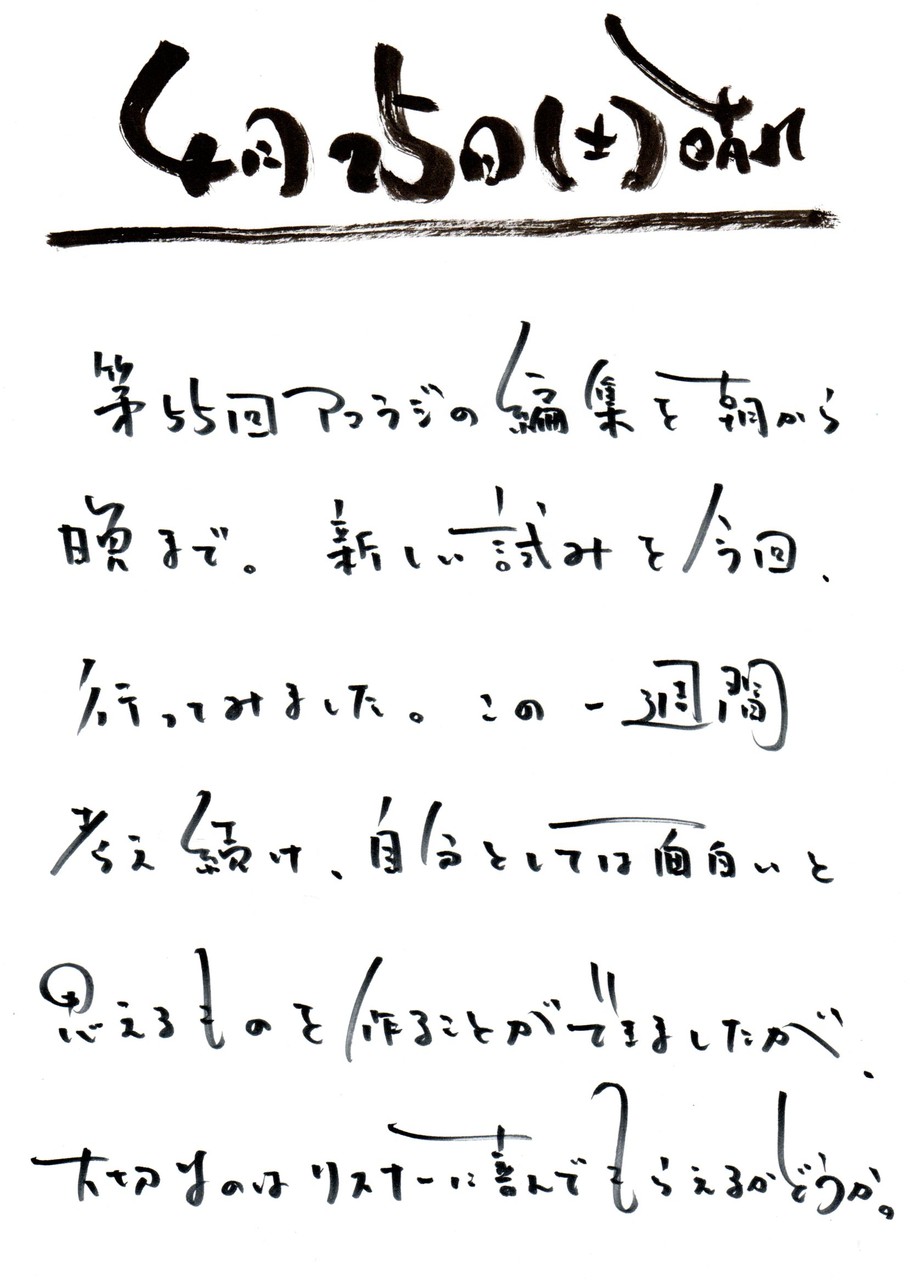 4月25日(土)晴れ
第55回アコラジの編集を朝から
晩まで。新しい試みを今回、
行ってみました。この一週間
考え続け、自分としては面白いと
思えるものを作ることができましたが、
大切なのはリスナーに喜んでもらえるかどうか。